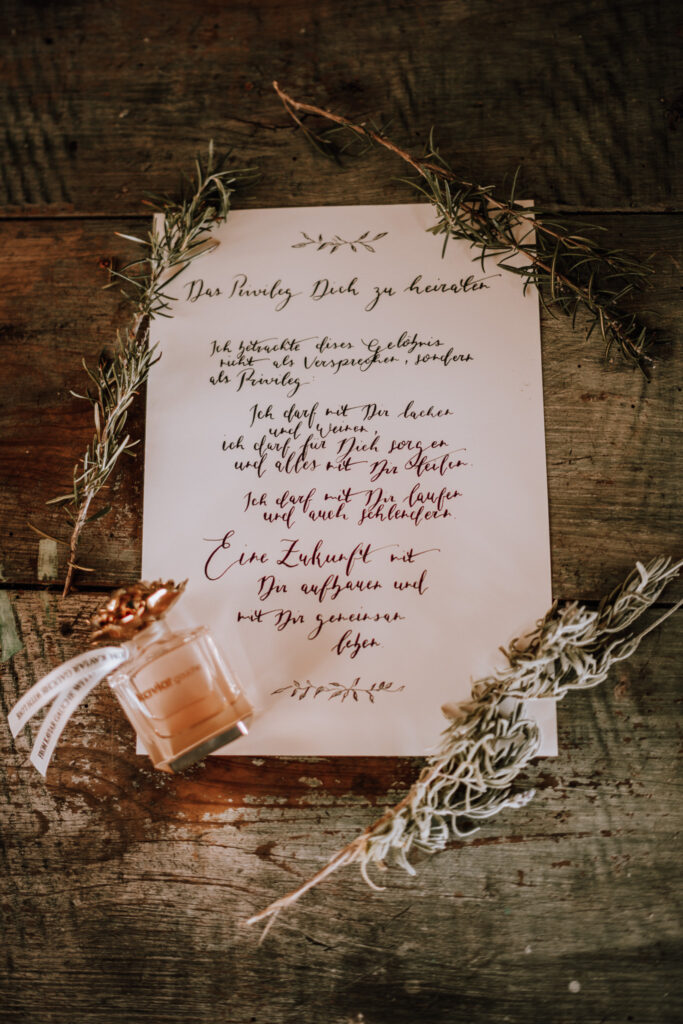 Das Privileg Dich zu heiraten
Ich betrachte dises Gelöbnis
nicht als Versprechen, sondern
als Privileg:
Ich darf mit Dir lachen
und weinen,
ich darf für Dich sorgen
und alles mit Dir teilen.
Ich darf mit Dir laufen
und auch schlendern.
Eine Zukunft mit
Dir aufbauen und
mit Dir gemeinsam
leben.
kaviar gauche
KAVIAR GAUCHE